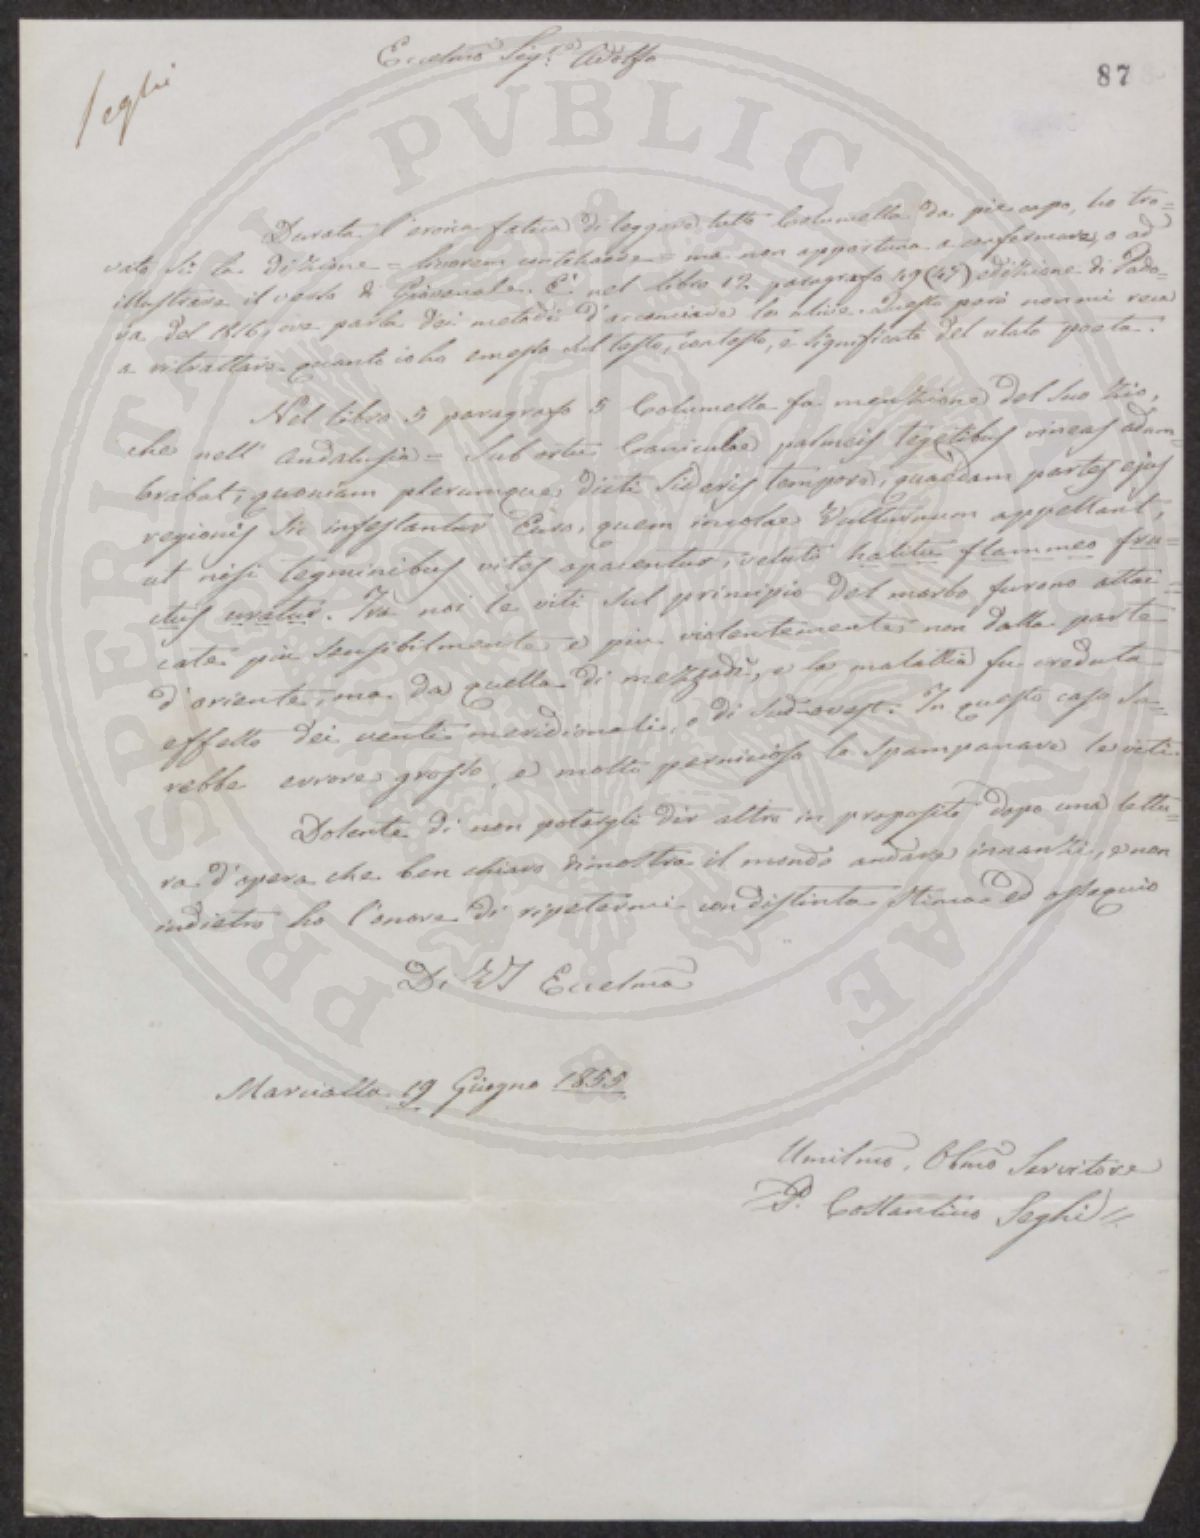 Eccelmo Sigr. Adolfo
Seghi
87
Durata l'eroica fatica di leggere tutto Columella da piè a capo, ho tro=
vato sì la dizione = linorem contrahere = ma non opportuna a confermare, o ad
illustrare il verso di Giovenale. È nel libro 12. paragrafo 49 (47) edizione di Pado=
va del 1816, ove parla dei metodi d'acconciare le ulive. Questo però non mi reca
a ritrattare quanto io ho emesso sul testo, contesto, e significato del citato poeta.
Nel libro 5 paragrafo 5 Columella fa menzione del suo Zio,
che nell' Andalusia = Sub ortu Caniculae palmeis tegetibus vineas adum=
brabat, quoniam plerumque dicti sideris tempore, quaedam partes ejus
regionis sic infestantur Euro, quem incolae Vulturnum appellant,
ut nisi tegminibus vites opacentur, veluti halitu flammeo fru=
ctus uratur. Tra noi le viti sul principio del morbo furono attac=
cate più sensibilmente e più violentemente non dalla parte
d'oriente, ma da quella di mezzodì, e la malattia fu creduta
effetto dei venti meridionali, o di sud-ovest. In questo caso sa=
rebbe errore grosso, e molto pernicioso lo spampanare le viti.
Dolente di non potergli dir altro in proposito dopo una lettu=
ra d'opera che ben chiaro dimostra il mondo andare innanzi, e non
indietro ho l'onore di ripetermi con distinta stima ed ossequio
Di VS Eccelma
Marcialla 19 Giugno 1855.
Umilmo, Obmo Servitore
P. Costantino Seghi
PROSPERITATI PVBLICAE AVGENDAE